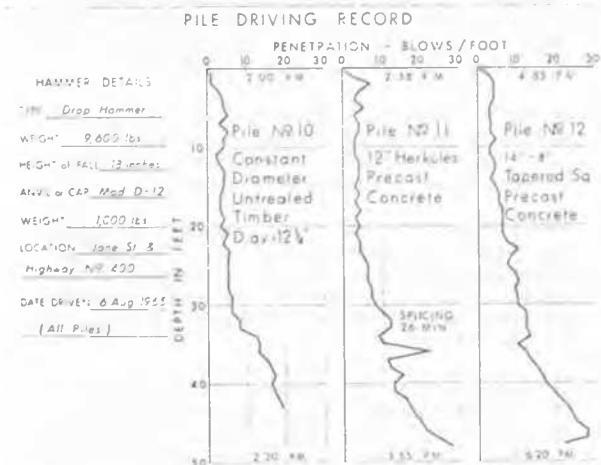 PILE DRIVING RECORD
PENETRATION - BLOWS / FOOT
0 10 20 30 0 10 20 30 0 10 20 30
HAMMER DETAILS
Drop Hammer
WEIGHT 9,600 lbs
HEIGHT of FALL 13 inches
ANVIL or CAP Mod D-12
WEIGHT 1,000 lbs
LOCATION Jane St &
Highway Nº 400
DATE DRIVEN 6 Aug
(All Piles)
DEPTH IN FEET
10
20
30
40
50
2.00 P.M.
Pile Nº 10
Constant
Diameter
Untreated
Timber
2.20 P.M.
2.38 P.M.
Pile Nº 11
12" Herkules
Precast
Concrete
SPLICING
26 MIN
3.55 P.M.
P.M.
Pile Nº 12
14" - 8"
Tapered Sq
Precast
Concrete
5.20 P.M.